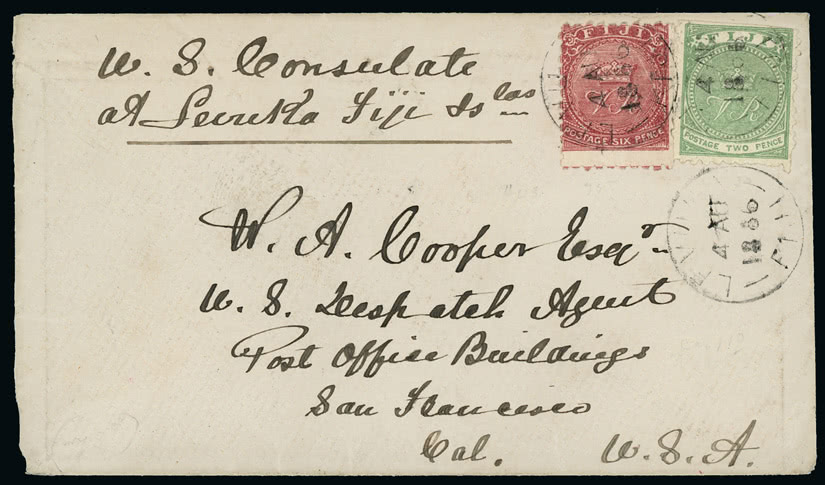 U. S. Consulate
at Levuka Fiji Islas
FIJI
POSTAGE SIX PENCE
FIJI
VR
POSTAGE TWO PENCE
4 AU
1886
FI
W. A. Cooper Esqr
U. S. Despatch Agent
Post Office Buildings
San Francisco
Cal. U. S. A.